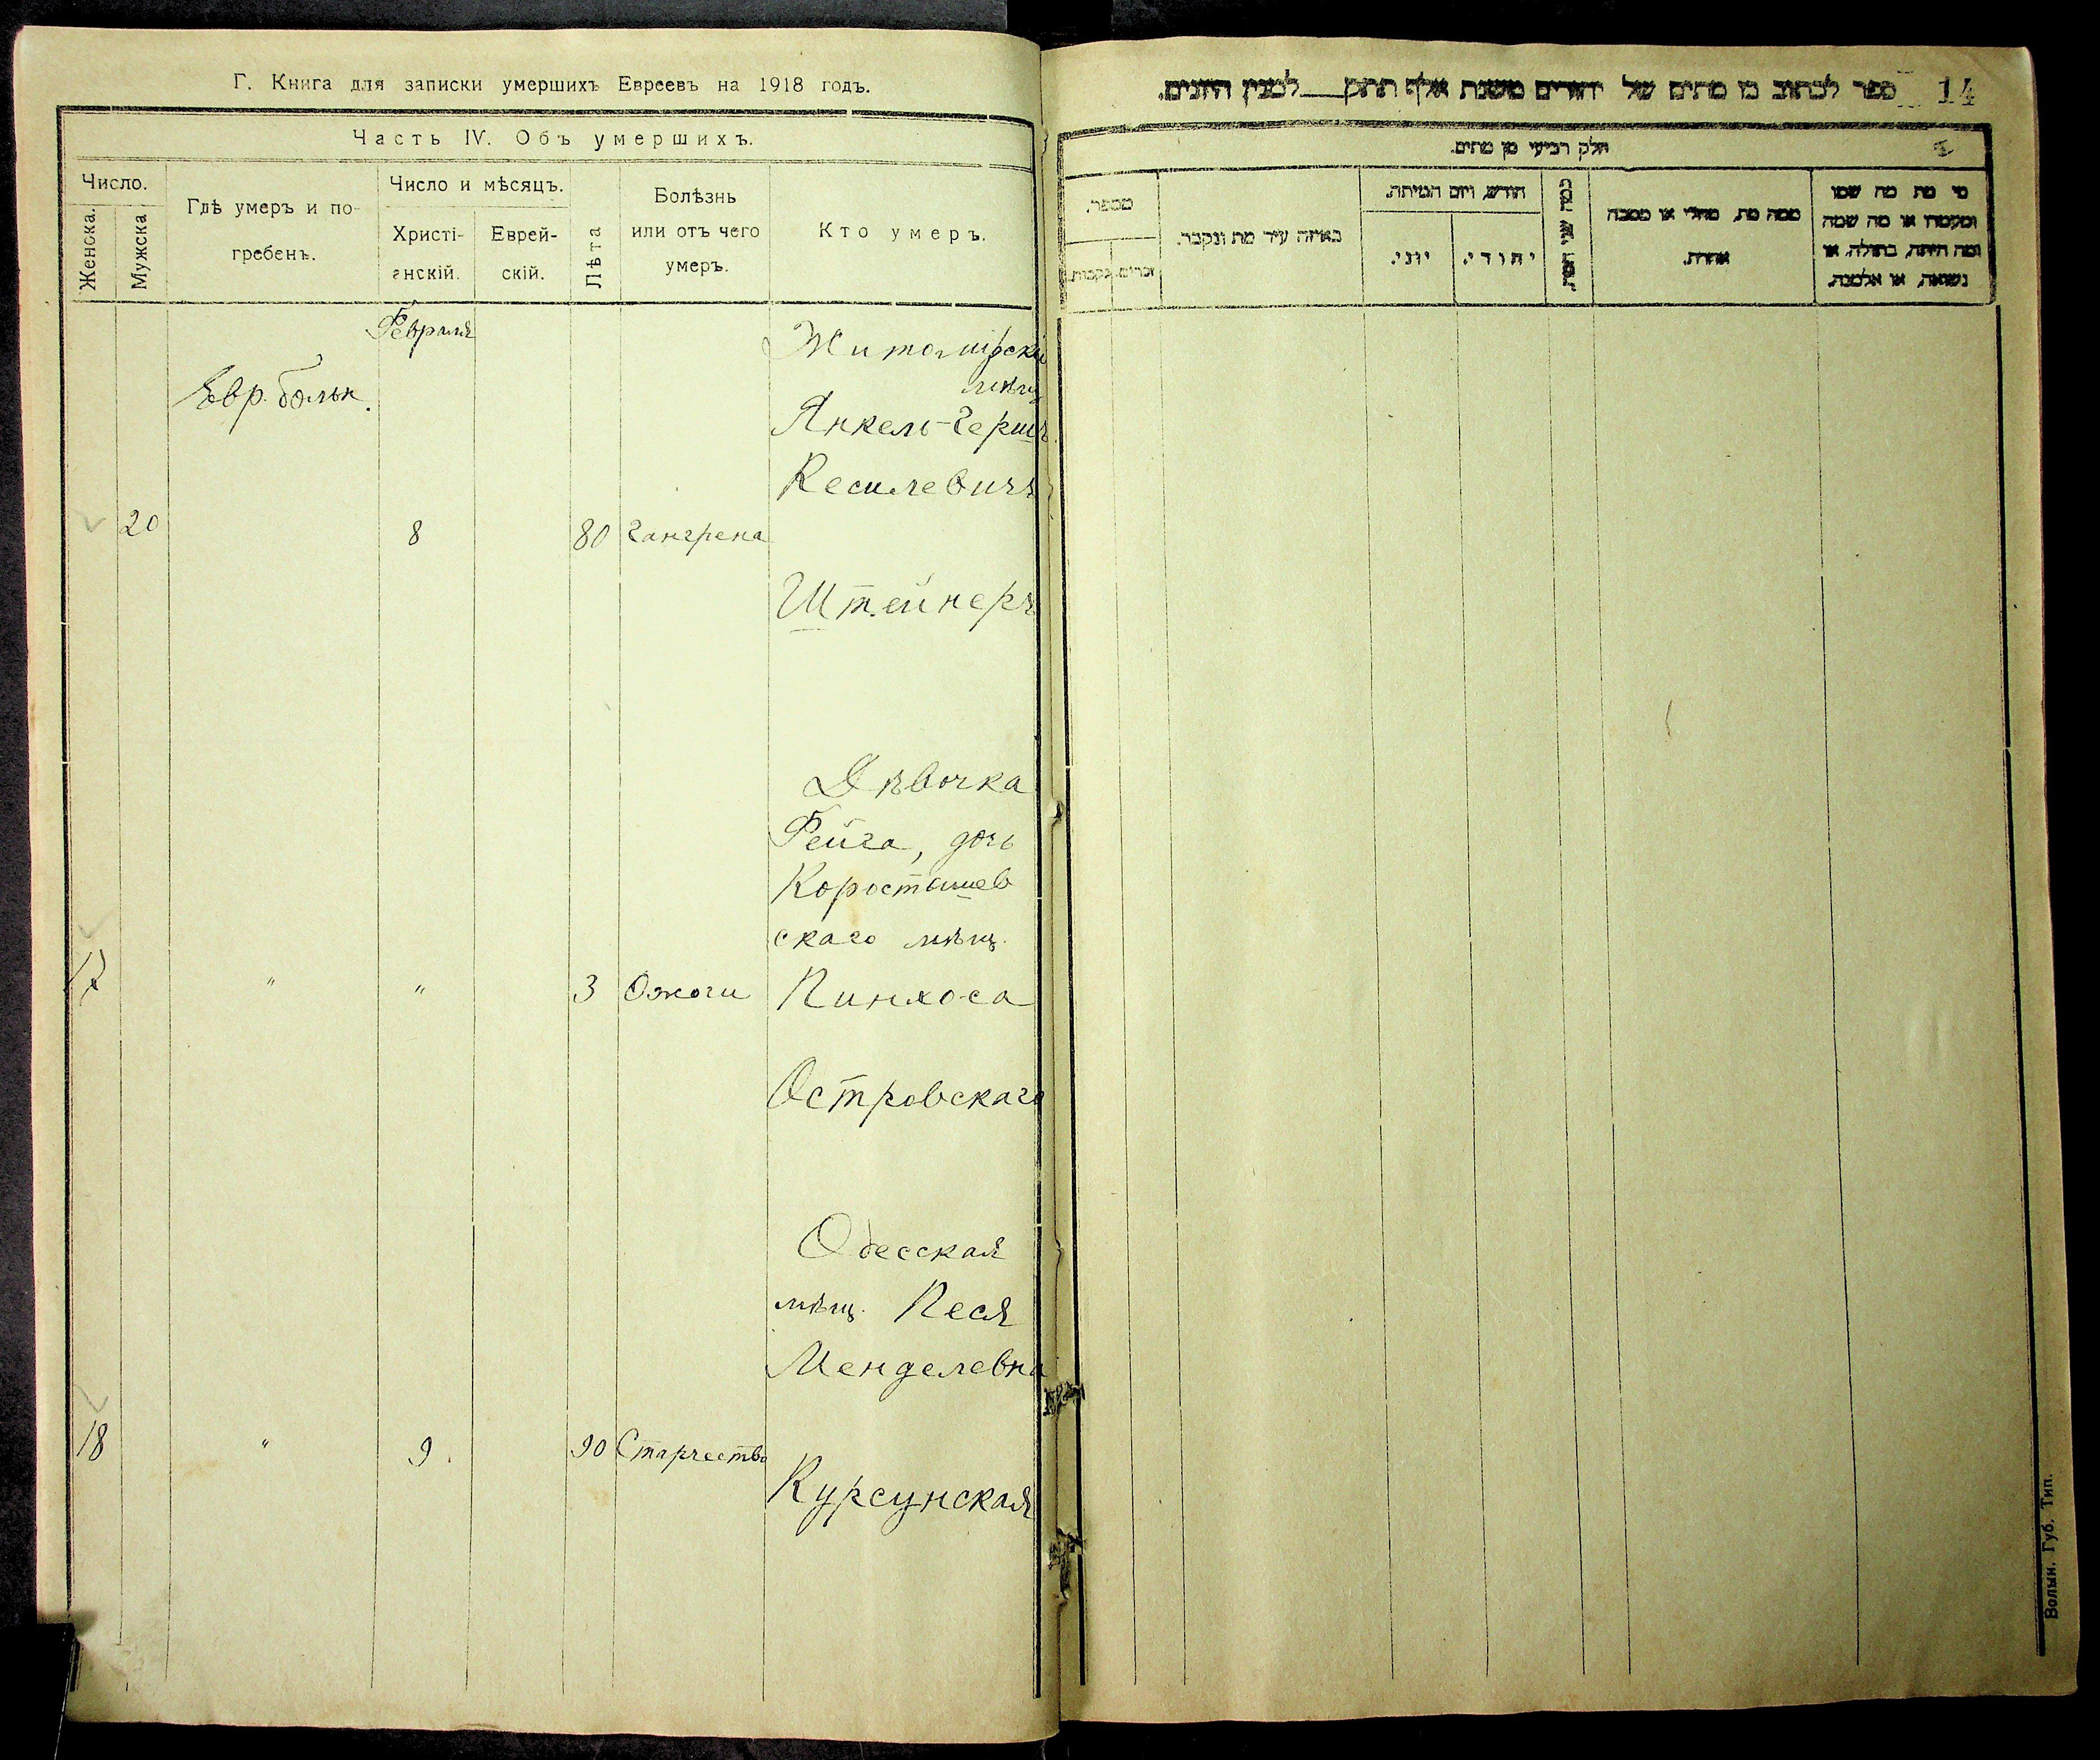 Г. Книга для записки умершихъ Евреевъ на 1918 годъ.
Часть IV. Объ умершихъ.
Число.
Женска.
Мужска
Гдѣ умеръ и по-
гребенъ.
Число и мѣсяцъ.
Христі-
анскій.
Еврей-
скій.
Лѣта
Болѣзнь
или отъ чего
умеръ.
Кто умеръ.
Февраля
Евр. больн.
20
8
80
Гангрена
Житомирскій
мѣщ
Янкель-Гершъ
Кесилевичъ
Штейнеръ
17
"
"
3
Ожоги
Дѣвочка
Фейга, дочь
Коростышев
скаго мѣщ.
Пинхоса
Островскаго
18
"
9
90
Старчество
Одесская
мѣщ. Песя
Менделевна
Курсунская
14
ספר לכתוב בו מתים של יהודים משנת אלף תתק___ למנין היונים.
חלק רביעי מן מתים.
מי מת מה שמו
ומעמדו או מה שמה
ומה היתה, בתולה, או
נשואה, או אלמנה.
ממה מת, מחלי או מסבה
אחרת.
כמה שני המת
חודש, ויום המיתה.
יהודי.
יוני.
באיזה עיר מת ונקבר.
מספר.
זכרים.
נקבות.
Волын. Губ. Тип.